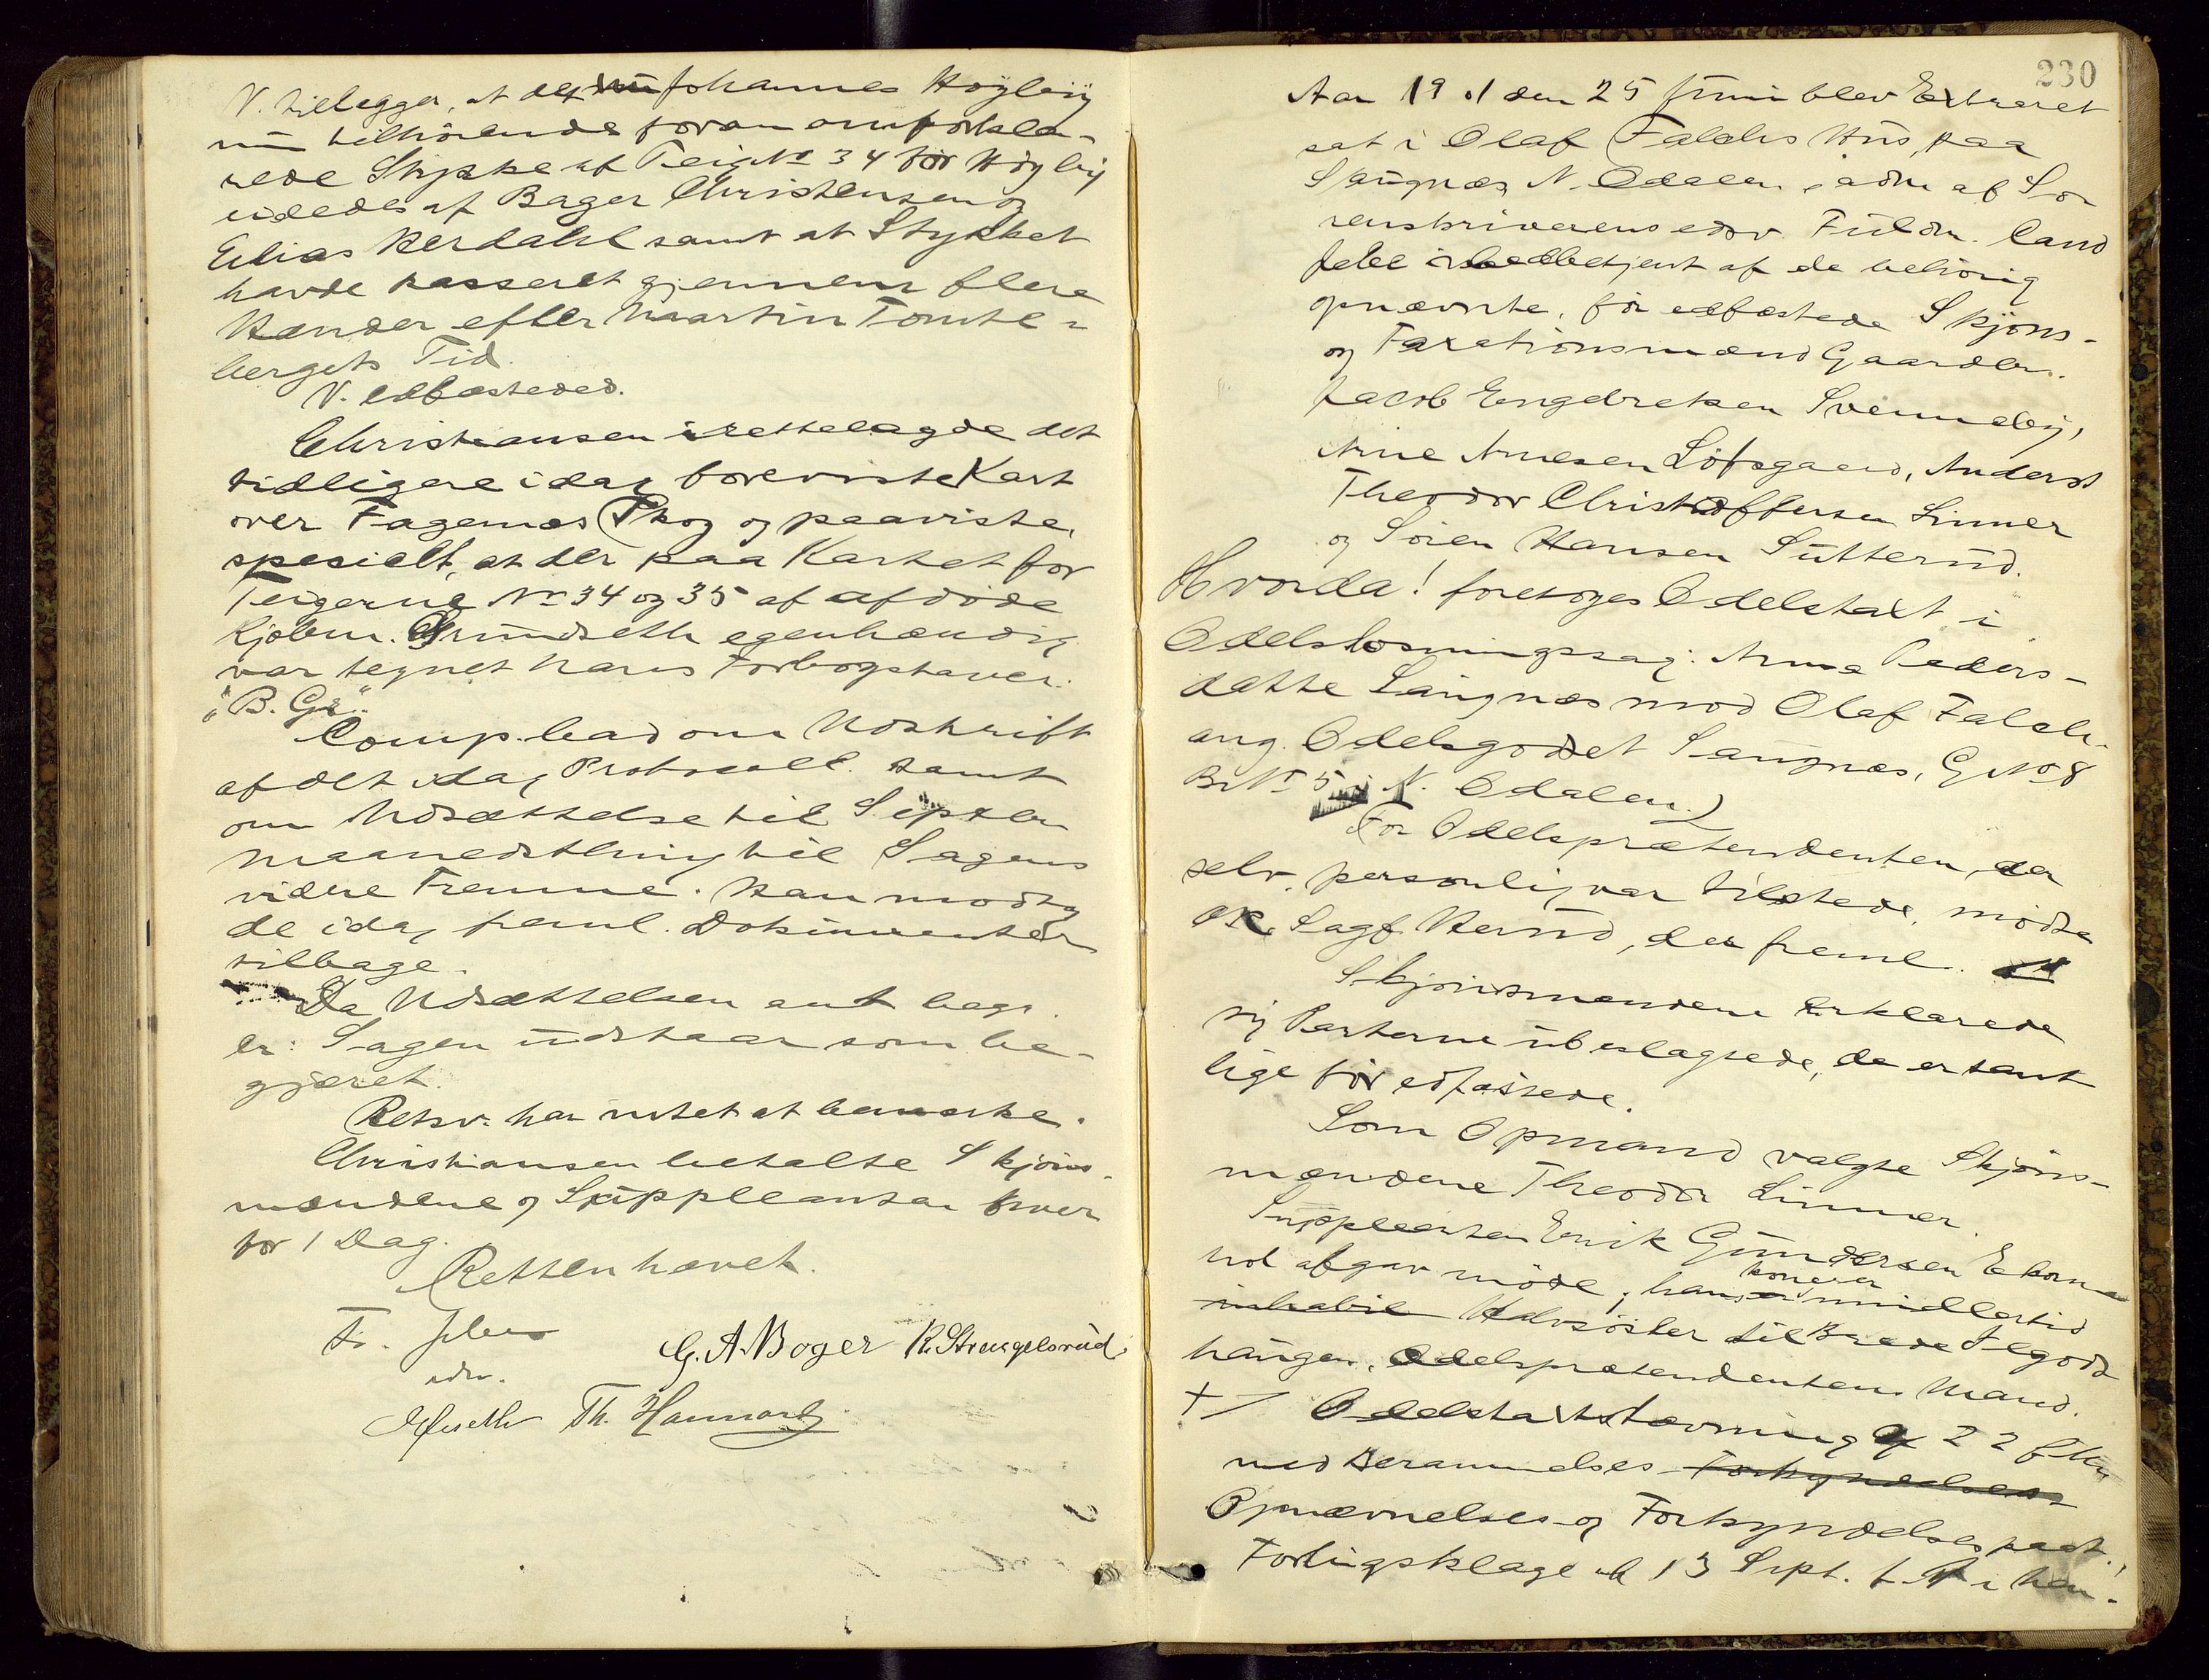 V. tillegger, at det Johannes Höyby
nu tilhörende foran omforkla-
rede Stykke af Teig No 34 för Höyby
eiedes af Bager Christensen og
Elias Berdahl samt at Stykket
havde passeret gjennem flere
Hænder efter Martin Tomte-
bergets Tid.
V. edfæstedes.
Christiansen irettelagde det
tidligere idag foreviste Kart
over Fagernes Skog og paaviste,
specielt, at der paa Kartet for
Teigerne No 34 og 35 af afdöde
Kjöbm. Grundseth egenhændig
var tegnet hans Forbogstaver:
"B. Gr."
Comp. bad om Udskrift
af det idag Protocoll. samt
om Udsættelse til Septbr
maanedsthing til Sagens
videre Fremme. Han modtog
de idag freml. Dokumenter
tilbage.
Da Udsættelsen ant. begr.
er: Sagen udstaar som be-
gjæret.
Retsv. har intet at bemærke.
Christiansen betalte Skjöns-
mændene og Suppleanten hver
for 1 Dag.
Retten hævet.
Fr.
edsv.
G. A. Boger R. Strengelsrud
Th.
230
Aar 1901 den 25 Juni blev Extraret
sat i Olaf Falchs Hus, paa
Saugnæs N. Odalen, adm af So-
renskriverens edsv. Fuldm. Cand
betjent af de behörig
opnævnte, för edfæstede Skjöns-
og Taxationsmænd Gaardbr.
Jacob Engebretsen Svenneby,
Arne Arnesen Löfsgaard, Anders
Theodor Christoffersen Linner
og Sören Hansen Sütterud.
Hvorda! foretoges Odelstaxt i
Odelslösningssag: Anna Peders-
datter Saugnæs mod Olaf Falch
ang. Odelsgodset Saugnæs, G No 8
Br No 5 i N. Odalen.)
For Odelsprætendenten, der
selv personlig var tilstede, mödte
O.R. Sagf. Kerud, der freml.
Skjönsmændene erklærede
sig Parterne ubeslægtede, de er samt
lige för edfæstede.
Som Opmand valgte Skjöns-
mændene Theodor Linner.
Suppleanten Erik Gundersen Ekorn-
hol afgav möde; hans kone er imidlertid
inhabil Halvsöster til
haugen, Odelsprætendentens Mand.
+/ Odelstaxtstævning af 22
med Berammelses Forkyndelses
Opnævnelses og Forkyndelses paat.,
Forligsklage af 13 Sept. f. A i hen-